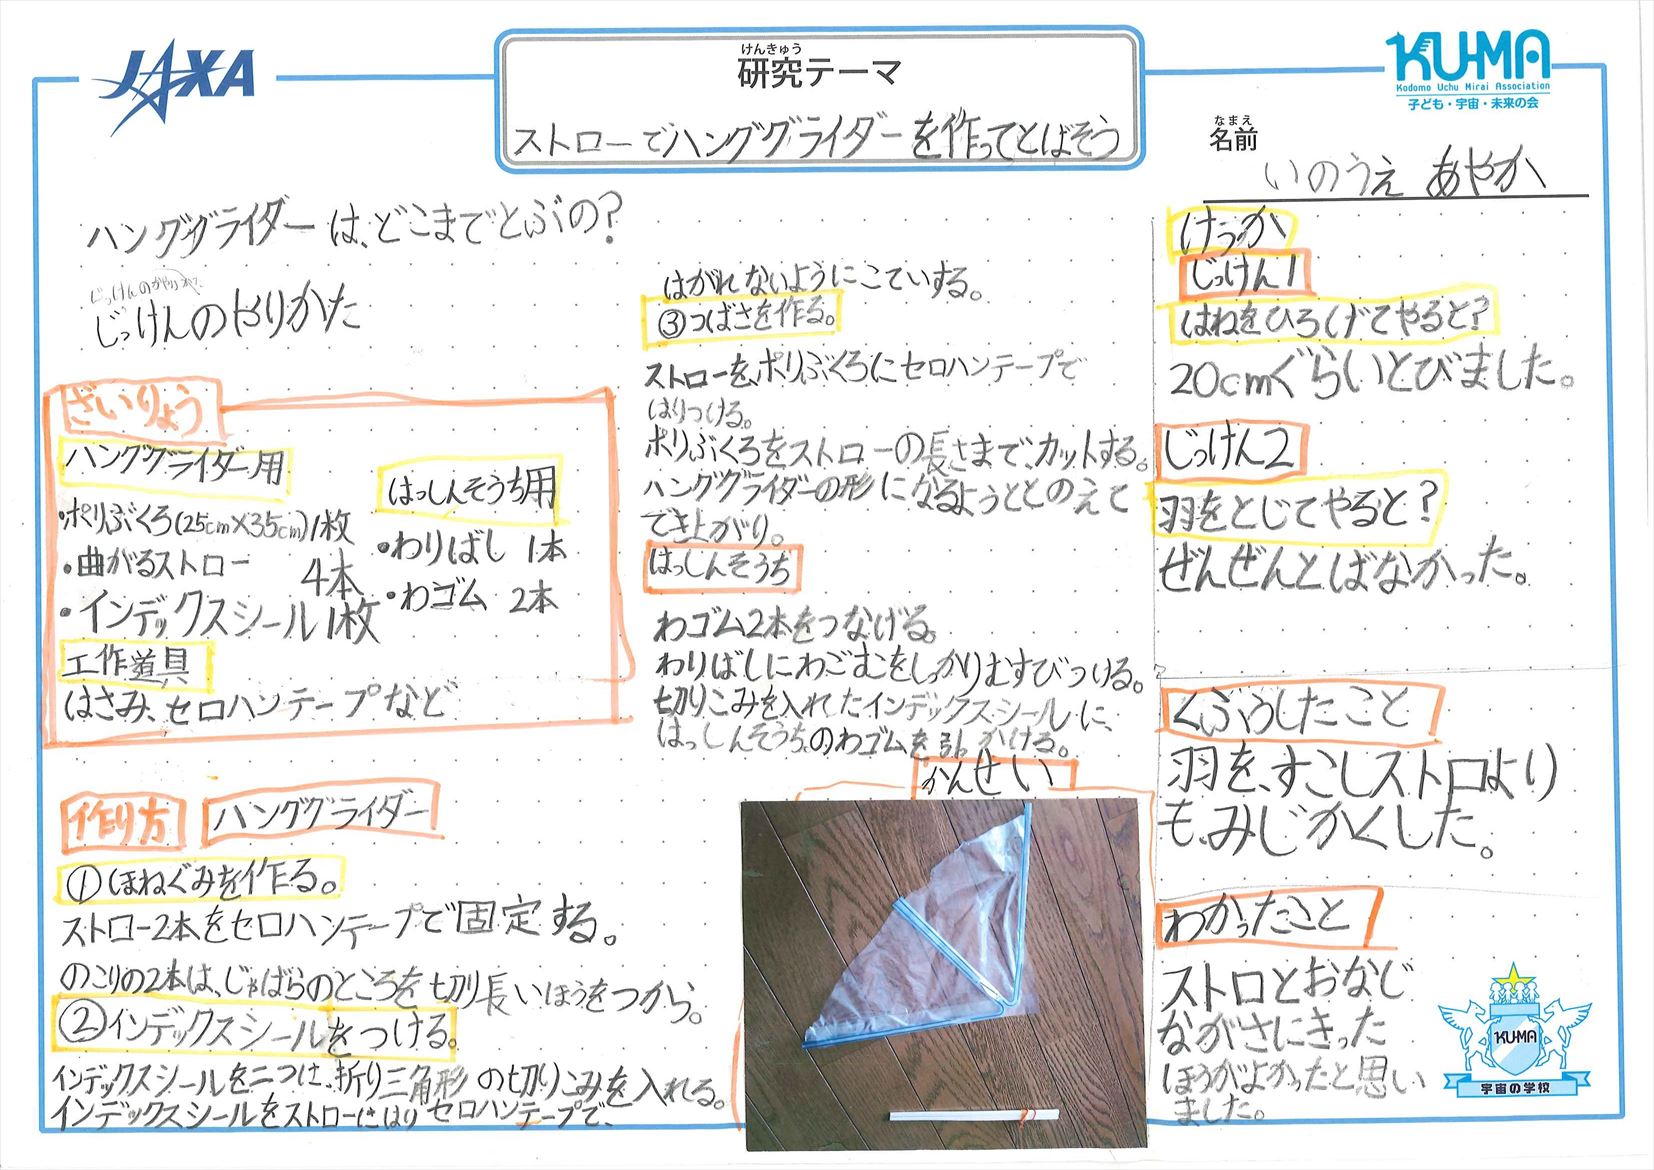 JAXA
けんきゅう
研究テーマ
ストローでハンググライダーを作ってとばそう
KUMA
Kodomo Uchu Mirai Association
子ども・宇宙・未来の会
なまえ
名前
いのうえ あやか
ハンググライダーは、どこまでとぶの?
じっけんのやりかた
ざいりょう
ハンググライダー用
・ポリぶくろ(25cm×35cm)1枚
・曲がるストロー 4本
・インデックスシール1枚
はっしんそうち用
・わりばし 1本
・わゴム 2本
工作道具
はさみ、セロハンテープなど
作り方 ハンググライダー
①ほねぐみを作る。
ストロー2本をセロハンテープで固定する。
のこりの2本は、じゃばらのところを切り長いほうをつから。
②インデックスシールをつける。
インデックスシールを二つに、折り三角形の切りこみを入れる。
インデックスシールをストローにはりセロハンテープで、
はがれないようにこていする。
③つばさを作る。
ストローを、ポリぶくろにセロハンテープで
はりつける。
ポリぶくろをストローの長さまで、カットする。
ハンググライダーの形になるようととのえて
でき上がり。
はっしんそうち
わゴム2本をつなげる。
わりばしにわごむをしっかりむすびつける。
切りこみを入れたインデックスシールに、
はっしんそうちのわゴムを引っかける。
かんせい
けっか
じっけん1
はねをひろげてやると?
20cmぐらいとびました。
じっけん2
羽をとじてやると?
ぜんぜんとばなかった。
くふうしたこと
羽を、すこしストロより
も、みじかくした。
わかったこと
ストロとおなじ
ながさにきった
ほうがよかったと思い
ました。
KUMA
宇宙の学校